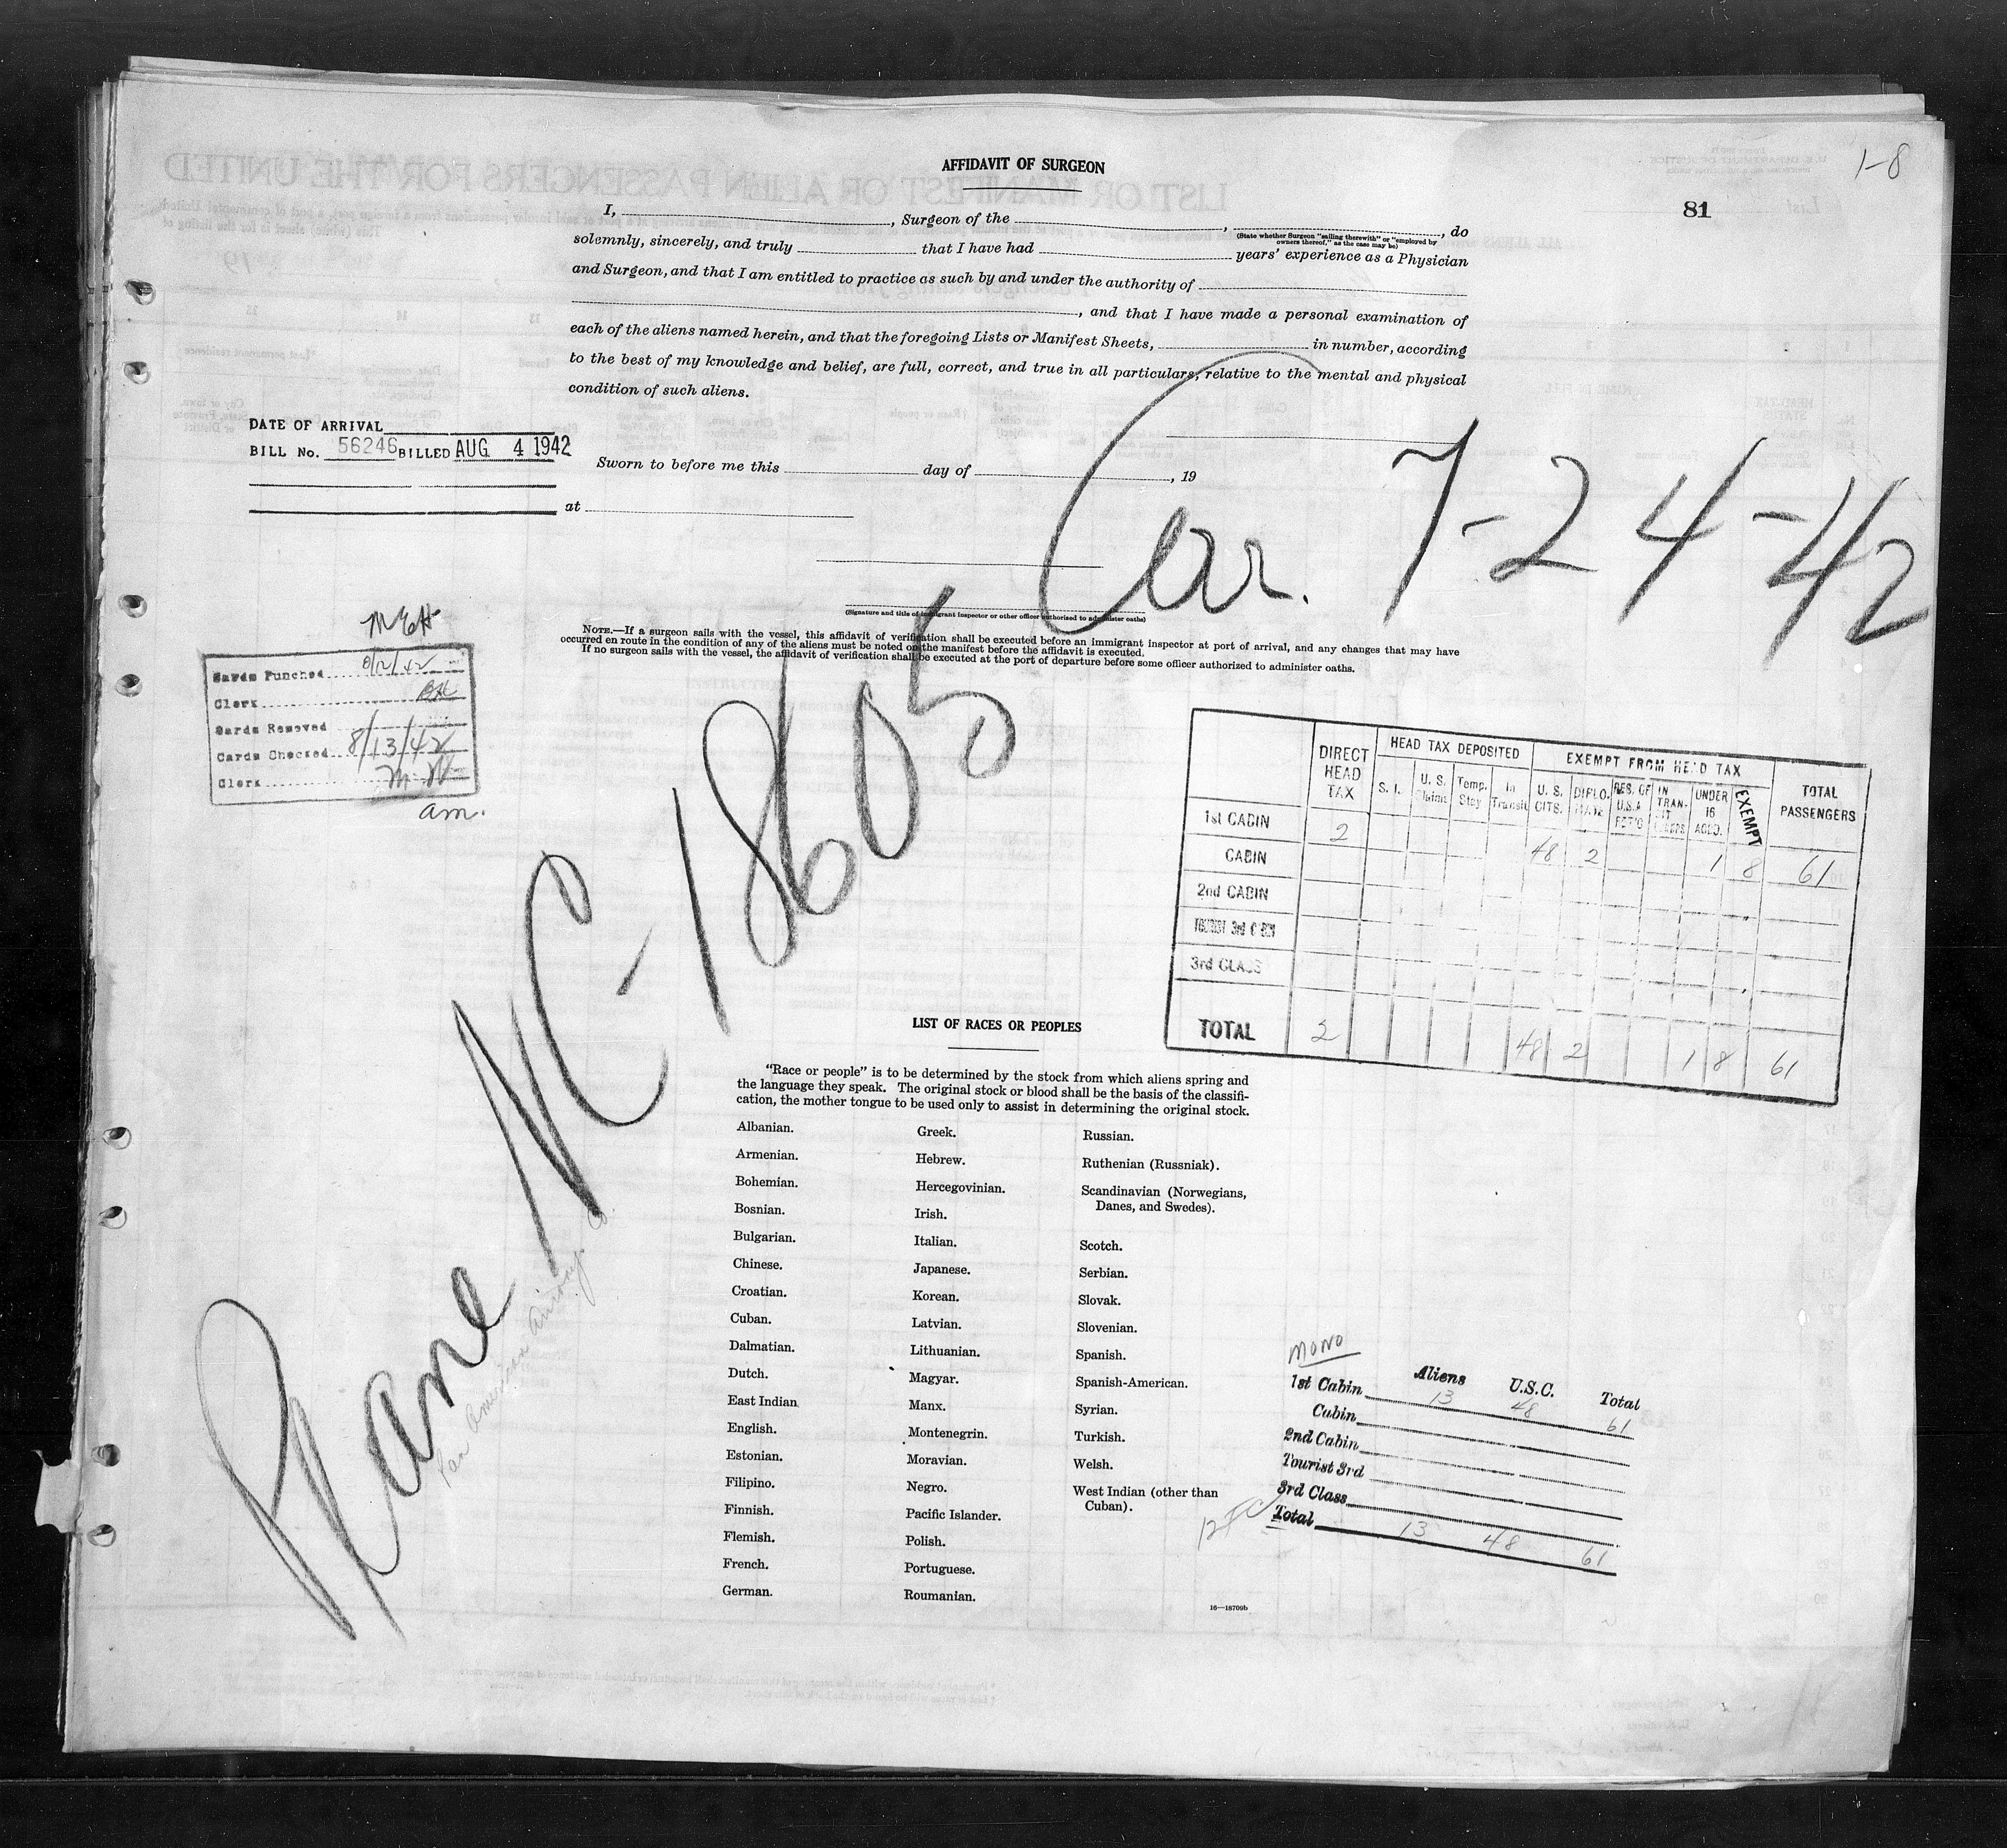 1-8
81
AFFIDAVIT OF SURGEON
I, , Surgeon of the , , do
(State whether Surgeon "sailing therewith" or "employed by
owners thereof," as the case may be)
solemnly, sincerely, and truly that I have had years' experience as a Physician
and Surgeon, and that I am entitled to practice as such by and under the authority of
, and that I have made a personal examination of
each of the aliens named herein, and that the foregoing Lists or Manifest Sheets, in number, according
to the best of my knowledge and belief, are full, correct, and true in all particulars, relative to the mental and physical
condition of such aliens.
DATE OF ARRIVAL
BILL No. 56246 BILLED AUG 4 1942
Sworn to before me this day of , 19
at
arr. 7-24-42
(Signature and title of immigrant inspector or other officer authorized to administer oaths)
NOTE.—If a surgeon sails with the vessel, this affidavit of verification shall be executed before an immigrant inspector at port of arrival, and any changes that may have
occurred en route in the condition of any of the aliens must be noted on the manifest before the affidavit is executed.
If no surgeon sails with the vessel, the affidavit of verification shall be executed at the port of departure before some officer authorized to administer oaths.
MEH
Cards Punched 8/12/42
Clerk
Cards Removed
Cards Checked 8/13/42
Clerk
am.
Plane NC-18605
Pan American Airways Co.
DIRECT HEAD TAX
HEAD TAX DEPOSITED
EXEMPT FROM HEAD TAX
TOTAL PASSENGERS
S. I.
U. S. Claims
Temp. Stay
In Transit
U. S. CITS.
DIPLO-
RES. OF U.S.A.
IN TRAN-SIT
UNDER 16 ACCD.
EXEMPT
1st CABIN 2 48 2 1 8 61
CABIN
2nd CABIN
TOURIST 3rd CABIN
3rd CLASS
TOTAL 2 48 2 1 8 61
LIST OF RACES OR PEOPLES
"Race or people" is to be determined by the stock from which aliens spring and
the language they speak. The original stock or blood shall be the basis of the classifi-
cation, the mother tongue to be used only to assist in determining the original stock.
Albanian.
Armenian.
Bohemian.
Bosnian.
Bulgarian.
Chinese.
Croatian.
Cuban.
Dalmatian.
Dutch.
East Indian
English.
Estonian.
Filipino.
Finnish.
Flemish.
French.
German.
Greek.
Hebrew.
Hercegovinian.
Irish.
Italian.
Japanese.
Korean.
Latvian.
Lithuanian.
Magyar.
Manx.
Montenegrin.
Moravian.
Negro.
Pacific Islander.
Polish.
Portuguese.
Roumanian.
Russian.
Ruthenian (Russniak).
Scandinavian (Norwegians,
Danes, and Swedes).
Scotch.
Serbian.
Slovak.
Slovenian.
Spanish.
Spanish-American.
Syrian.
Turkish.
Welsh.
West Indian (other than
Cuban).
16—18709b
MONO
Aliens U.S.C. Total
1st Cabin 13 48 61
Cabin
2nd Cabin
Tourist 3rd
3rd Class
Total 13 48 61